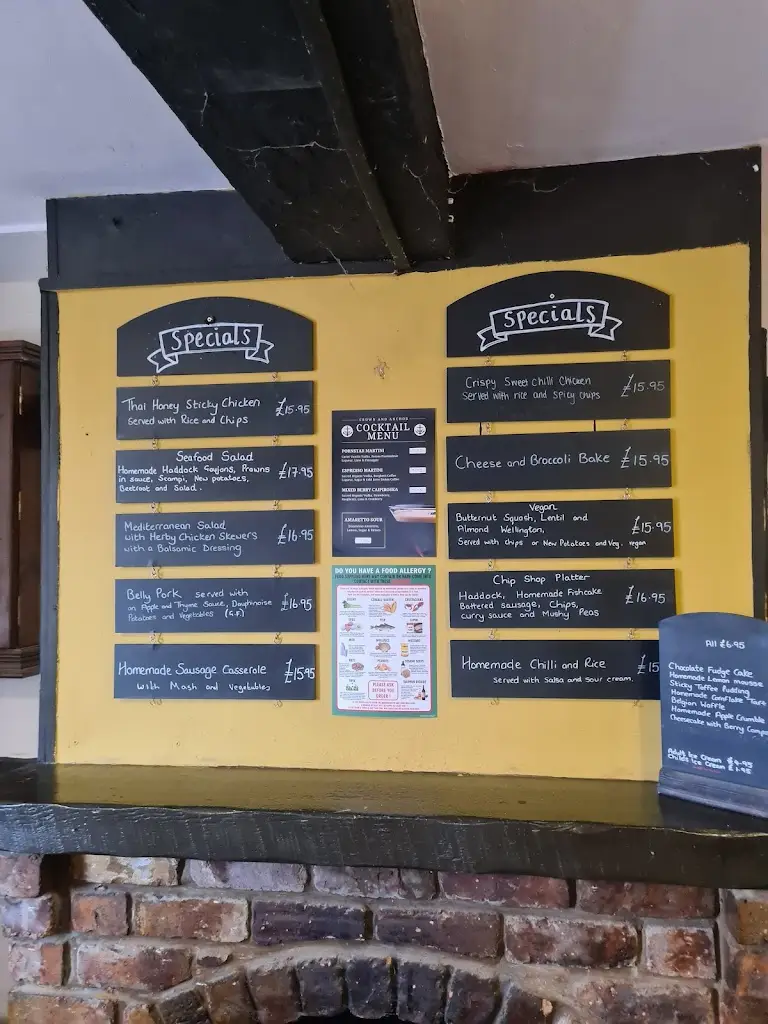 Specials
Thai Honey Sticky Chicken
Served with Rice and Chips
£15.95
Seafood Salad
Homemade Haddock Goujons, Prawns
in sauce, Scampi, New potatoes,
Beetroot and Salad.
£17.95
Mediterranean Salad
with Herby Chicken Skewers
with a Balsamic Dressing
£16.95
Belly Pork served with
an Apple and Thyme Sauce, Dauphinoise
Potatoes and Vegetables (G.F.)
£16.95
Homemade Sausage Casserole
with Mash and Vegetables
£15.95
CROWN AND ANCHOR
COCKTAIL
MENU
PORNSTAR MARTINI
ESPRESSO MARTINI
MIXED BERRY CAIPIROSKA
AMARETTO SOUR
DO YOU HAVE A FOOD ALLERGY ?
PLEASE ASK
BEFORE YOU
ORDER!
Specials
Crispy Sweet Chilli Chicken
Served with rice and spicy chips
£15.95
Cheese and Broccoli Bake £15.95
Vegan
Butternut Squash, Lentil and
Almond Wellington,
Served with chips or New Potatoes and Veg. vegan
£15.95
Chip Shop Platter
Haddock, Homemade Fishcake
Battered sausage, Chips,
curry sauce and Mushy Peas
£16.95
Homemade Chilli and Rice
served with Salsa and sour cream.
£15
All £6.95
Chocolate Fudge Cake
Homemade Lemon mousse
Sticky Toffee Pudding
Homemade Cornflake Tart
Belgian Waffle
Homemade Apple Crumble
Cheesecake with Berry Comp
Adult Ice Cream £4.95
Childs Ice Cream £1.95